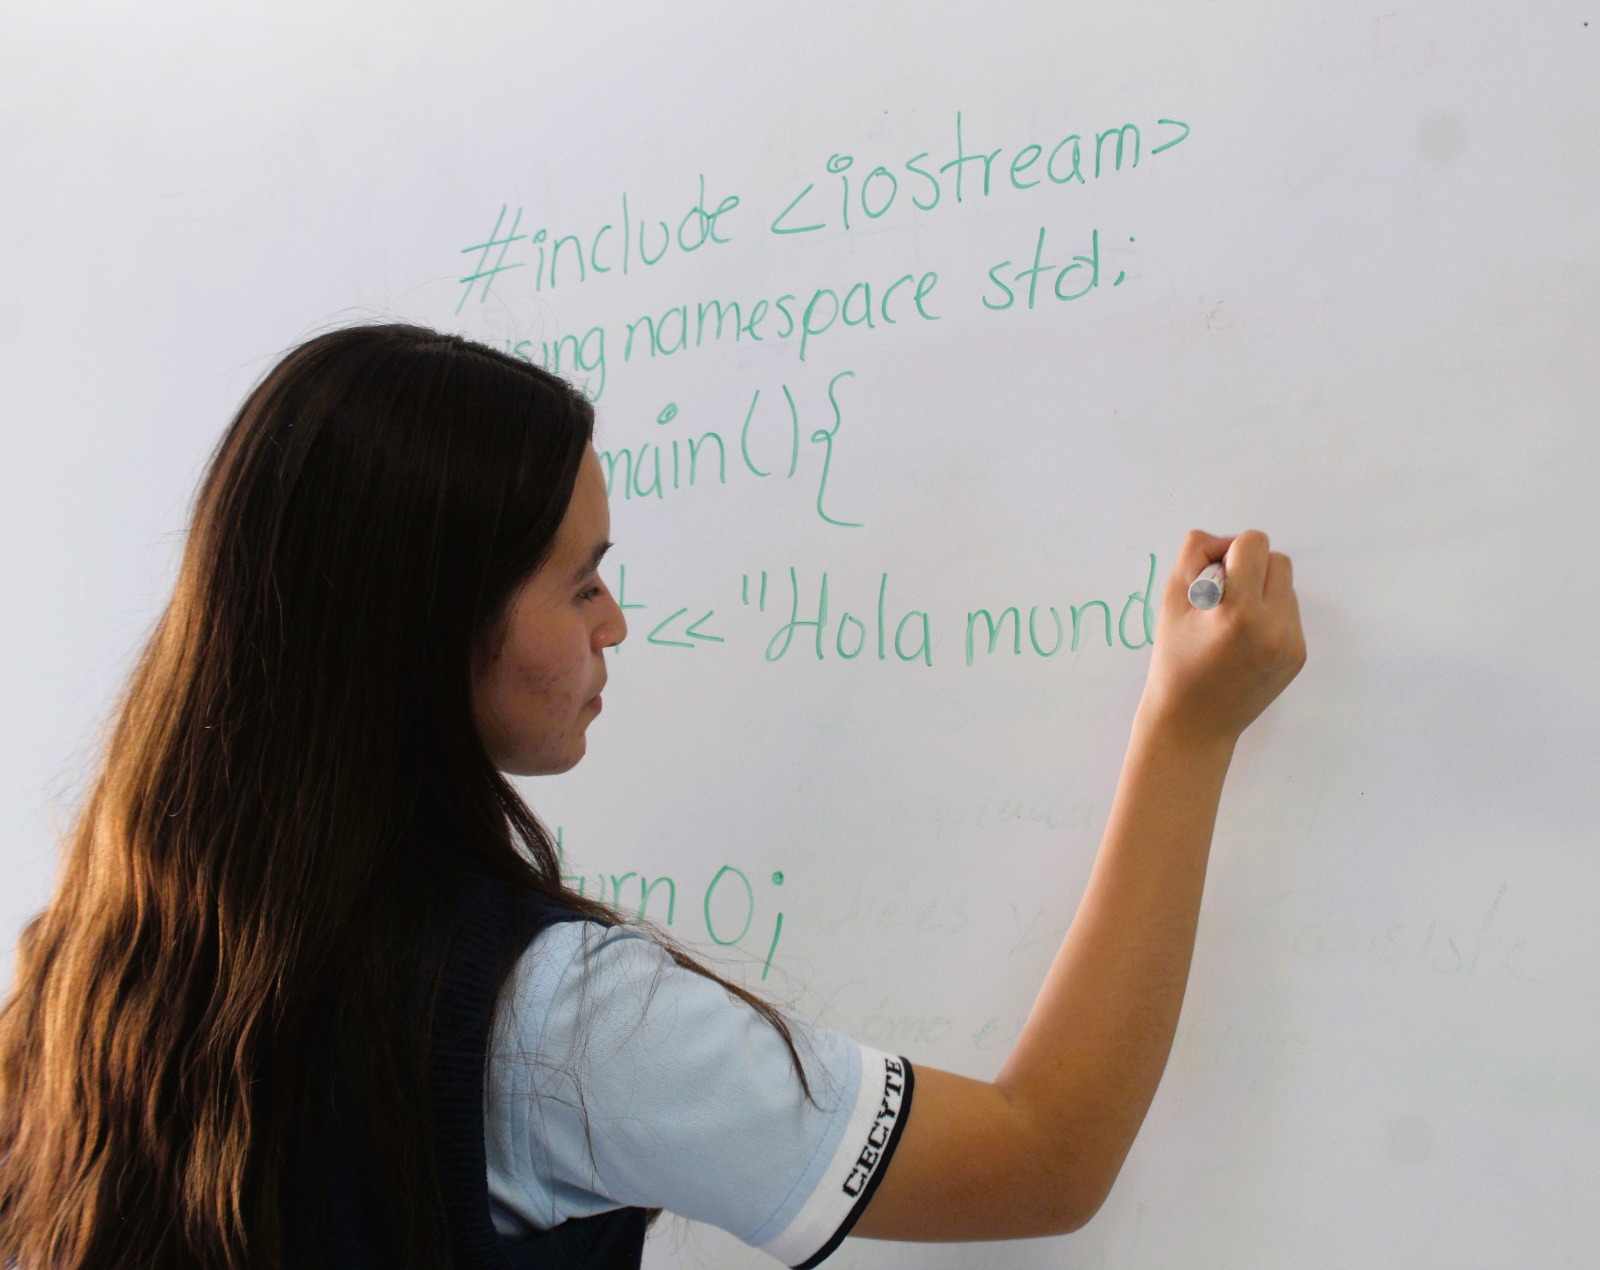 #include <iostream>
using namespace std;
main(){
<< "Hola mund
turn 0;
CECYTE